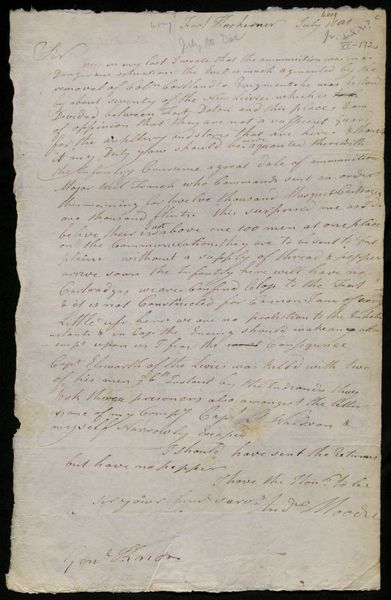 Fort Herkemer July
July 10 Dae
Sir
in my last I wrote that the ammunition was in a
Dangerous situation the Evel is much agmented by the
removal of Col. Cortlands Regument he was
by about seventy of the New Livies which is
Devided between Fort Daton and this place I am
of oppinion that they are not a suffisent guard
for the artillery and stores that are here I thought
it my Duty you should be aquanted therewith
the Infantry Consume a great dale of ammunition
Major that French who Commands sent an order
this morning for twelve thousand Musquet Cartrages
one thousand flints this surprised me as I do
belive there is not above one 100 men at one place
on the Communication, they are to be sent to Fort
plain without a supply of thread & papper
arive soon the Infantry here will have no
Cartradges we are Confined Close to the Fort
& it is not Constructed for Cannon I am of very
Little use here we are no protection to the Inhabi
tants & in Case the Enemy should make an attem
empt upon us I fear the Consequence
Capt. Elsworth of the Livies was kild with two
of his men 6th Instant by the Indians three
took three prisoners also amongst the latter
is one of my Compy Capt. Waldron &
myself Narrowly Escaped
I should have sent the returns
but have no papper
I have the Honr. to be
Sir your Hum. Sarvt.
Moodie
Genl. Knox